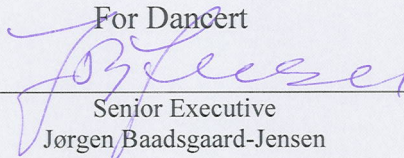 For Dancert
Senior Executive
Jørgen Baadsgaard-Jensen